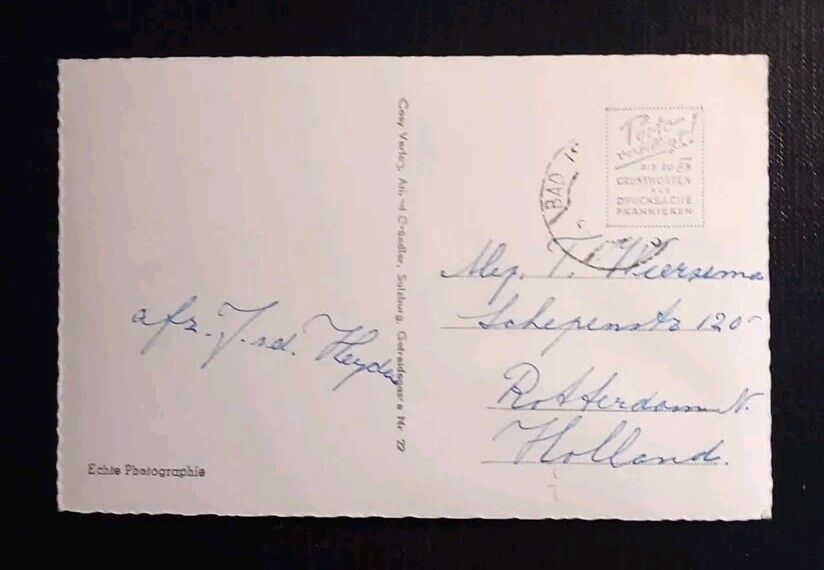 Porto
verbilligt!
BIS ZU 5
GRUSSWORTEN
ALS
DRUCKSACHE
FRANKIEREN
BAD
Cosy Verlag, Alfred Gründler, Salzburg, Getreidegasse Nr. 22
T. Wiersema
Schepenstr 120
Rotterdam N.
Holland.
afz. J. v.d. Heyden
Echte Photographie